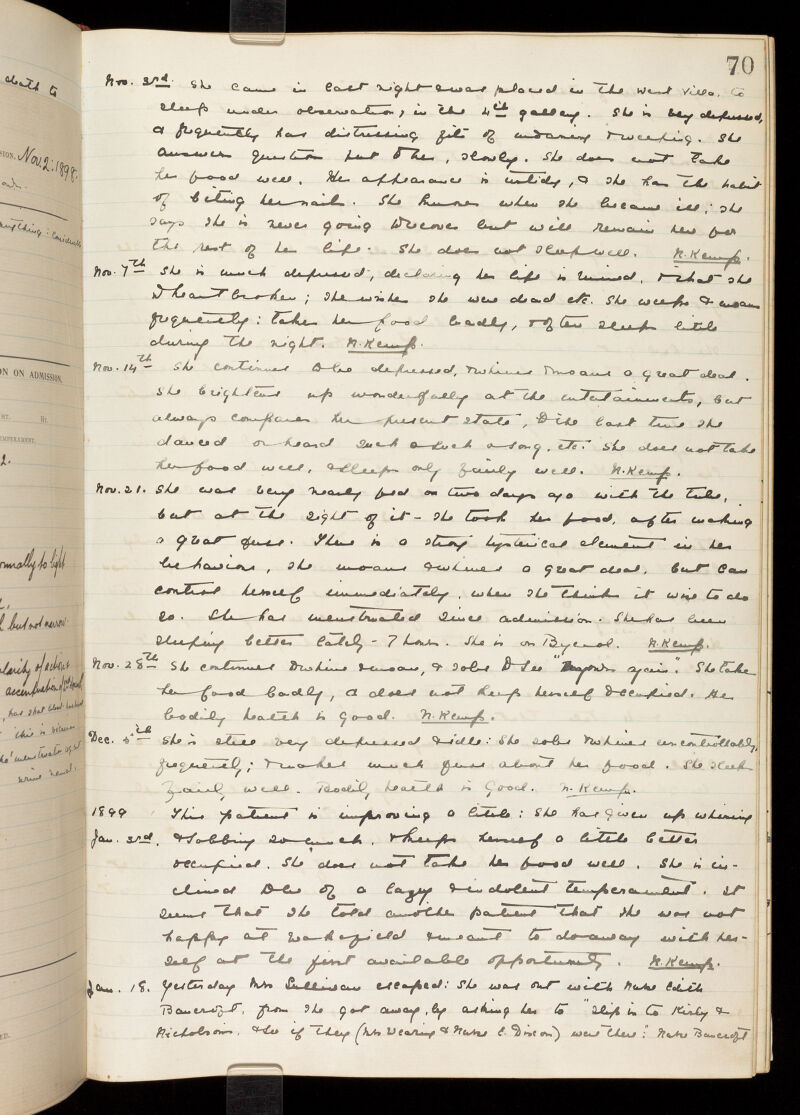 70
death to
SION. Nov. 2: 1898.
anything: considerable
ON ON ADMISSION.
HT. Ht.
EMPERAMENT.
2.
ormally to light
but not narrow
Nov. 3rd. She came in last night & was placed in the West Villa, to
sleep under observation, in the 4th gallery. She is very depressed,
& frequently has distressing fits of moaning & weeping. She
answers questions put to her, slowly. She does not take
her food well. Her appearance is untidy, & she has the habit
of biting her nails. She knows when she became ill; she
says she is never going to recover but will remain here for
the rest of her life. She does not sleep well. N. Kemp.
Nov. 7th She is much depressed, declaring her life is ruined, & that she
is heart broken; she wishes she were dead etc. She weeps & moans
frequently: takes her food badly, & often sleeps little
during the night. N. Kemp.
Nov. 14th She continues to be depressed, & whines & moans a great deal.
She brightens up wonderfully at the entertainments, but
always compares her present state, to the last time she
danced or heard such & such a song, etc. She does not take
her food well, & sleeps only fairly well. N. Kemp.
Nov. 21. She was very nearly fed on two days ago with the tube,
but at the sight of it - she took her food, after making
a great fuss. There is a strong hysterical element in her
behaviour, she moans & whines a great deal, but can
control herself immediately, when she thinks it wise to do
so. She has menstruated since admission. She has been
sleeping better lately - 7 hours. She is on N. Kemp.
Nov. 28th She continues to whine & moan, & sobs to see " again". She takes
her food badly, & does not keep herself occupied. Her
bodily health is good. N. Kemp.
Dec. 5th She is still very depressed & idle: She sobs & whines uncontrollably,
frequently; & makes much fuss about her food. She sleeps
fairly well. Bodily health is good. N. Kemp.
1899 This patient is improving a little: she has given up whining
Jan. 3rd. & sobbing so much, & keeps herself a little better
occupied. She does not take her food well. She is in-
clined to be of a lazy & indolent temperament. It
seems that she told another patient that she was not
happy at Wakefield & meant to do away with her-
self at the first available opportunity. N. Kemp.
Jan. 18. Yesterday Mrs Sullivan escaped: She was out with Nurse Edith
Bancroft, from she got away, by asking her to "slip in to Kirby &
Nicholsons, & see if they (Mrs Wearing & Nurse E. Dixon) were there": Nurse Bancroft